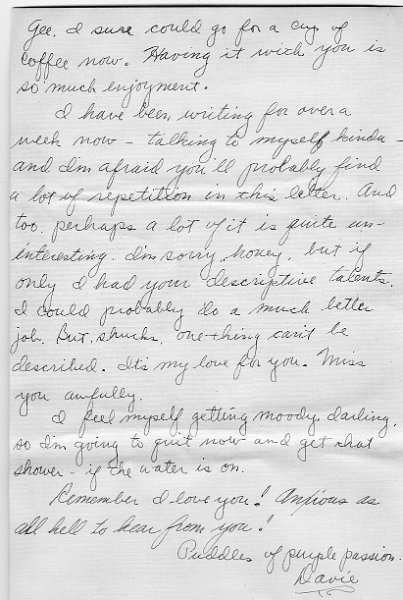 Gee, I sure could go for a cup of
coffee now. Having it with you is
so much enjoyment.
I have been writing for over a
week now - talking to myself kinda -
and I'm afraid you'll probably find
a lot of repetition in this letter. And
too, perhaps a lot of it is quite un-
interesting. I'm sorry, honey, but if
only I had your descriptive talents,
I could probably do a much better
job. But, shucks, one thing can't be
described. It's my love for you. Miss
you awfully.
I feel myself getting moody, darling,
so I'm going to quit now and get that
shower - if the water is on.
Remember I love you! Anxious as
all hell to hear from you!
Puddles of purple passion.
Davie